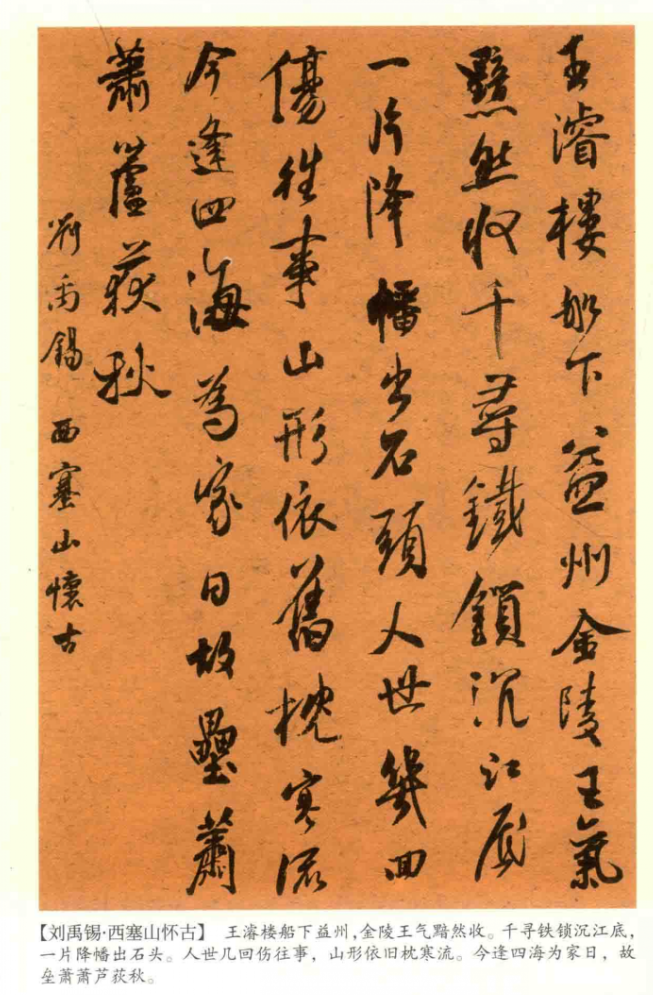 王濬樓船下益州金陵王氣
黯然收千尋鐵鎖沉江底
一片降幡出石頭人世幾回
傷往事山形依舊枕寒流
今逢四海為家日故壘蕭
蕭蘆荻秋
劉禹錫 西塞山懷古
【刘禹锡·西塞山怀古】 王濬楼船下益州,金陵王气黯然收。千寻铁锁沉江底,
一片降幡出石头。人世几回伤往事,山形依旧枕寒流。今逢四海为家日,故
垒萧萧芦荻秋。